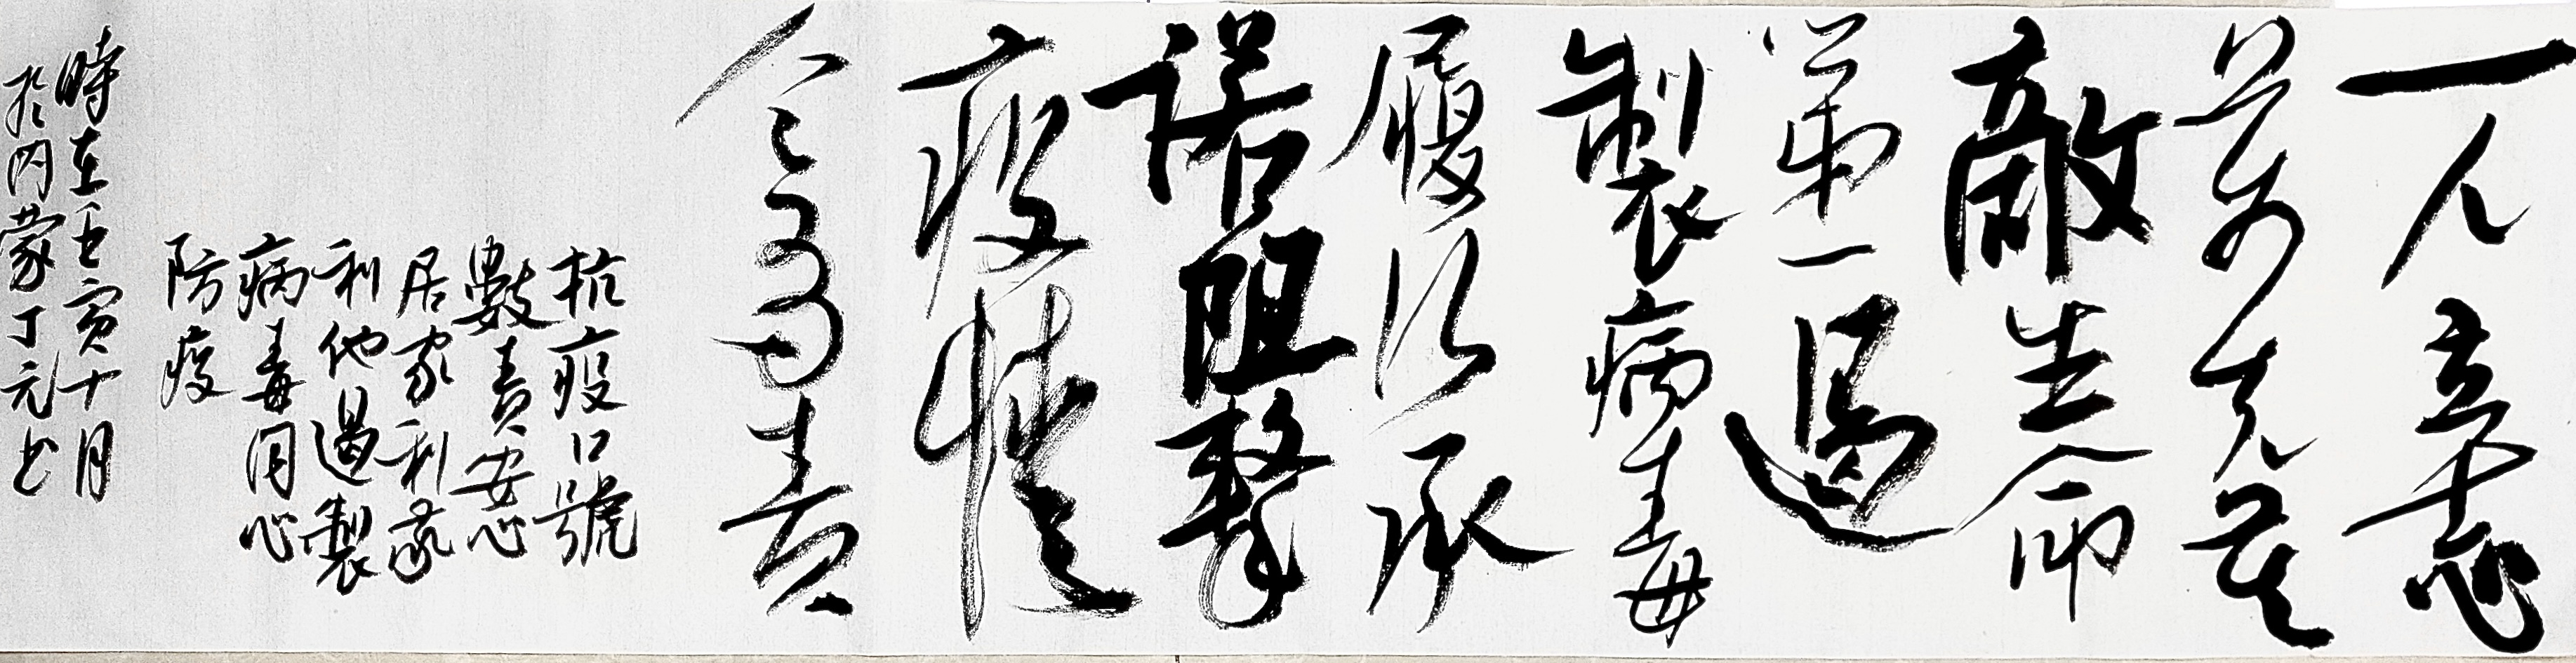 一人立志
萬夫莫
敵生命
第一遏
製病毒
履行承
諾阻擊
疫情
人人有責
抗疫口號
數責安心
居家利家
利他遏製
病毒同心
防疫
時在壬寅十月
於內蒙丁元书